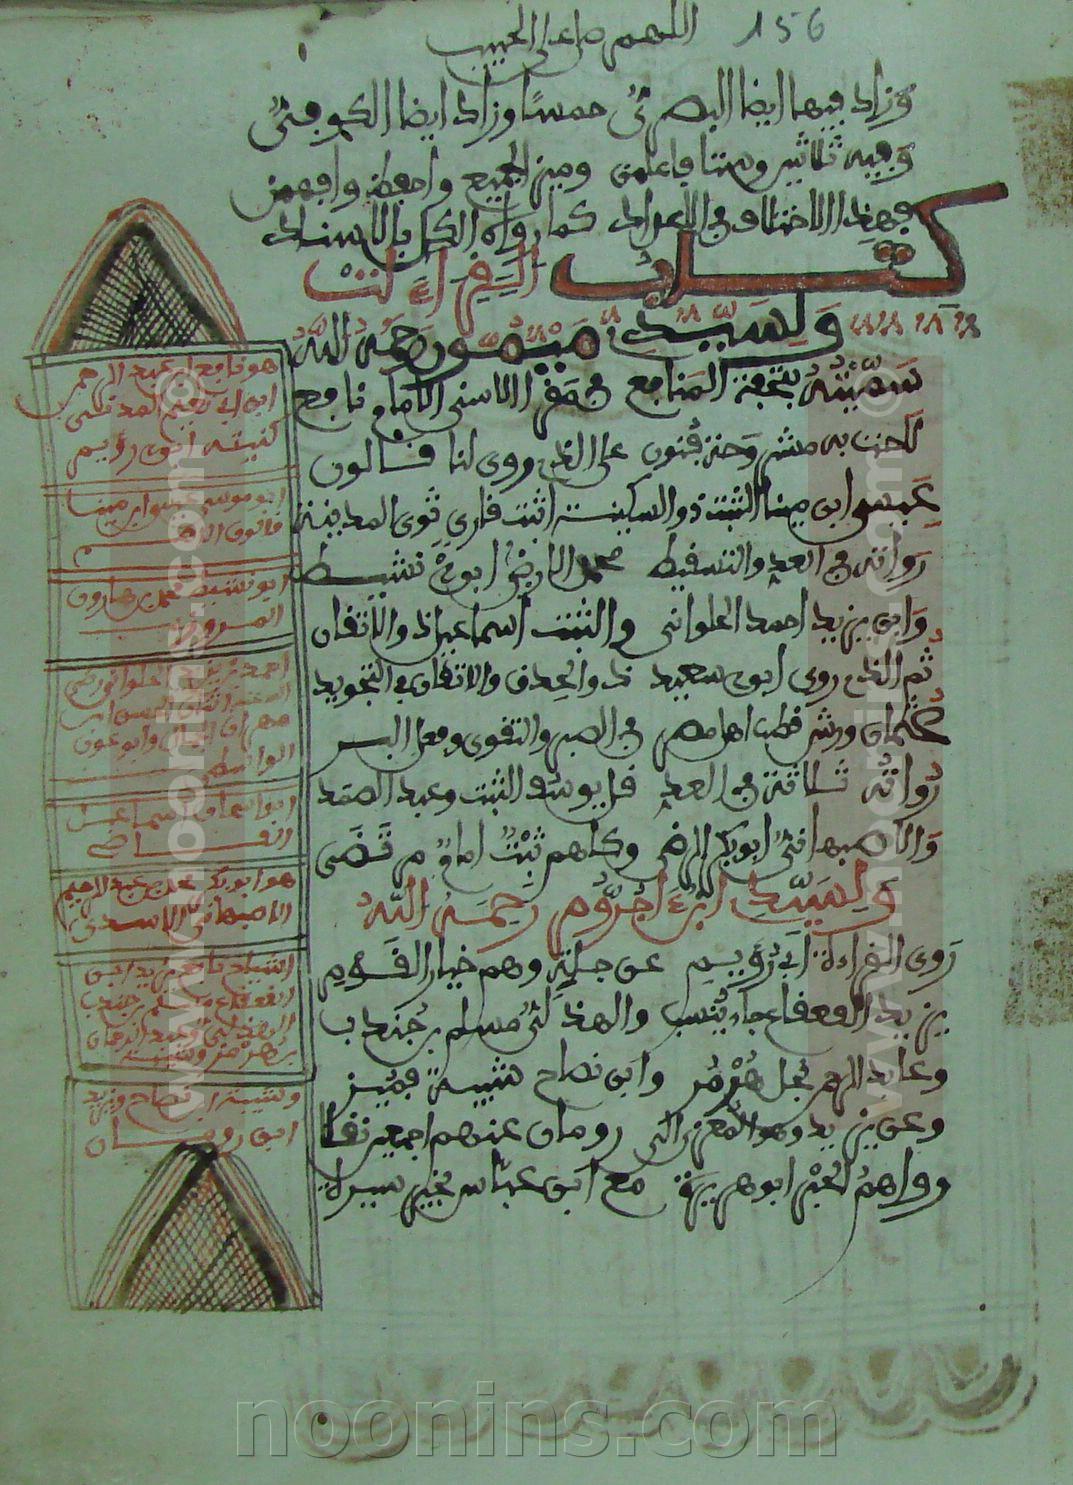 156
اللهم صل على الحبيب
وزاد فيها ايضا البصري خمسا وزاد ايضا الكوفي
وفيه ثلاثين وستا فاعلمن وميز الجميع واحفظن وافهمن
فهذا الاختلاف في الاعداد كما رواه الكل بالاسناد
كتاب القراءات
ولسيدي ميمون رحمه الله
سميته بتحفة المنافع في مقرإ الاسنى الامام نافع
على الذي روى لنا قالون
عيسى ابن مينا الثبت ذو السكينة اثبت قارئ ثوى المدينة
رواته في العد والتسقيط محمد الارضى ابو نشيط
وابن يزيد احمد الحلواني والثبت اسماعيل ذو الاتقان
ثم الذي روى ابو سعيد ذو الحذق والاتقان في التجويد
عثمان ورش قطب اهل مصر في الصبر والتقوى وفعل البر
رواته ثلاثة في العد قل يوسف الثبت وعبد الصمد
والاصبهاني ابو بكر الرضى وكلهم ثبت امام مرتضى
ولسيدي ابن اجروم رحمه الله
روى القراءة ابي رويم عن جلة وهم خيار القوم
يزيد القعقاع جاء ينسب والهذلي مسلم بن جندب
وعابد الرحمن نجل هرمز وابن نصاح شيبة فميز
وعن يزيد وهو المعزي الى رومان عنهم اجمعين نقلا
ووالهم الحبر ابو هريرة مع ابن عباس بخير سيرة
هو نافع ابن عبد الرحمن
ابن ابي نعيم المدني
كنيته ابو رويم
ابو موسى عيسى ابن مينا
قالون
ابو نشيط محمد بن هارون
المروزي
احمد بن يزيد الحلواني
ابو اسحاق اسماعيل
القاضي
هو ابو بكر محمد بن عبد الرحيم
الاصبهاني الاسدي
اشياخ نافع يزيد ابن
القعقاع ومسلم بن جندب
الهذلي وعبد الرحمان
بن هرمز وشيبة
وشيبة ابن نصاح ويزيد
ابن رومان
www.noonins.com
www.noonins.com
noonins.com